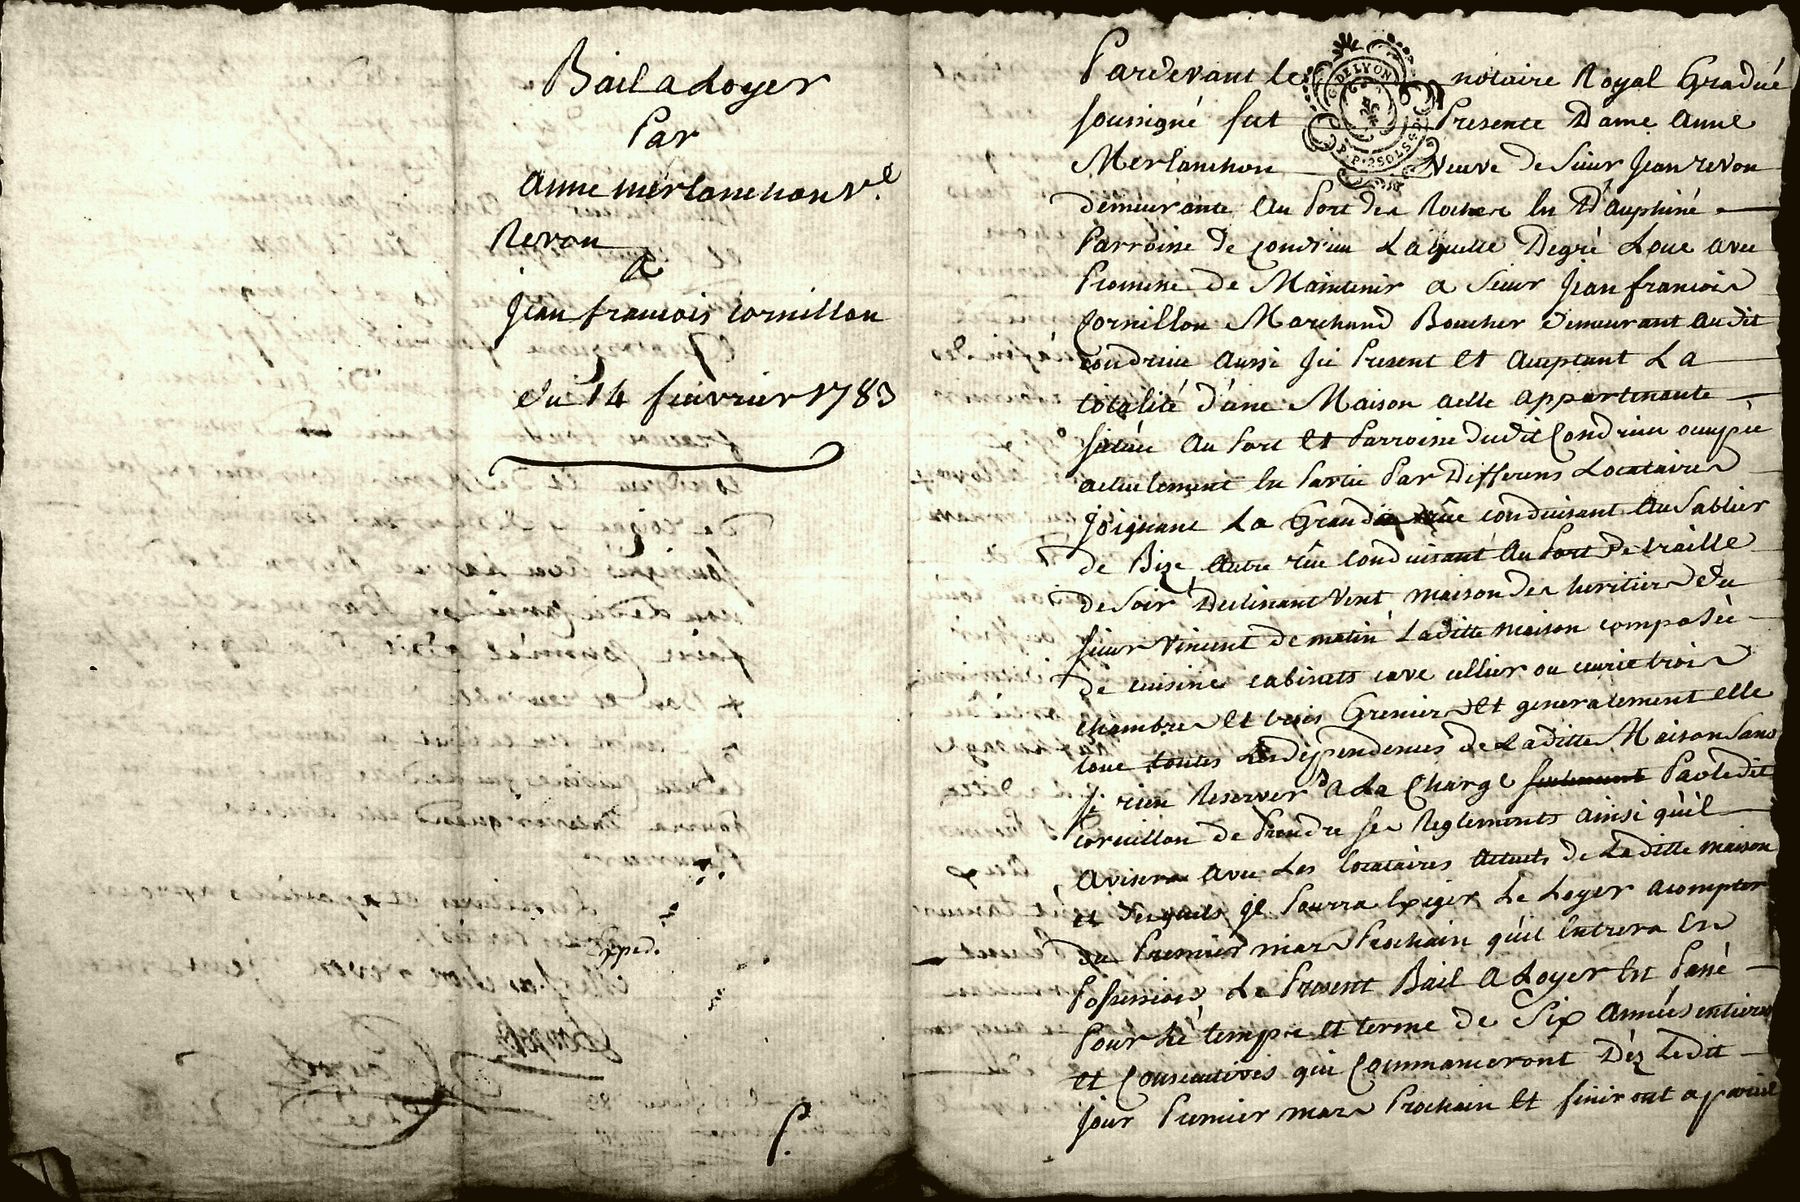 Bail a Loyer
Par
Anne merlanchon v.e
Revon
A
Jean francois Cornillon
du 14 fevrier 1783
Exped.
Pardevant le notaire Royal Gradué
soussigné fut Presente Dame Anne
Merlanchon veuve de Sieur Jean revon
demeurante Au Port des Roches En Dauphiné
Parroisse de Condrieu Laquelle Degré Loue avec
Promesse de Maintenir a Sieur Jean francois
Cornillon Marchand Boucher demeurant audit
Condrieu aussi Ici Present et acceptant La
totalité d'une Maison aelle appartenante
située Au Port et Parroisse dudit Condrieu occupée
actuelement En Partie Par Differens Locataires
Joignant La Grande rüe conduisant Au Sablier
de Bize Autre rüe Conduisant Au Port De traille
de Soir Declinant Vent maison des heritiers du
sieur Vincent de matin Laditte maison composée
de cuisine cabinets cave cellier ou ecurie trois
chambres et trois Greniers et generalement elle
loue toutes Les dépendences de Laditte Maison Sans
si rien Reserver A La Charge seulement Par ledit
Cornillon de Prendre ses Reglements ainsi qu'il
avisera avec Les locataires actuels de Laditte maison
et desquels Jl Pourra Exiger Le Loyer acompter
du Premier mars Prochain qu'il Entrera En
Possession Le Present Bail A Loyer Est Passé
Pour Le temps et terme de Six Années entieres
et Consecutives qui Commanceront Déz Ledit
jour Premier mars Prochain et finiront a pareil
G. DE LYON
P.P. 2 SOLS